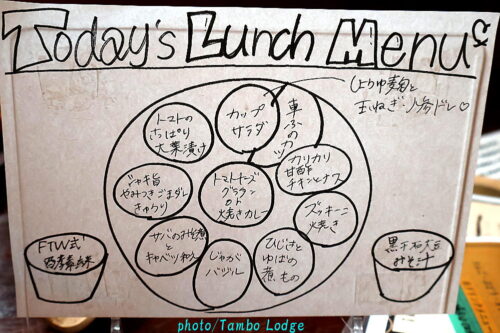 Today's Lunch Menu
しょうゆ麹と
玉ねぎ・人参ドレ♡
トマトの
さっぱり
大葉漬け
カップ
サラダ
車ふのカツ
カリカリ
甘酢
チキンとナス
シャキ旨
やみつきごまダレ
きゅうり
トマトチーズ
グラタン
のト
焼きカレー
ズッキーニ
焼き
サバのみそ煮
と
キャベツ和え
じゃが
バジル
ひじきと
ゆばの
煮もの
FTW式
酵素玄米
黒千石大豆
みそ汁
photo/Tambo Lodge